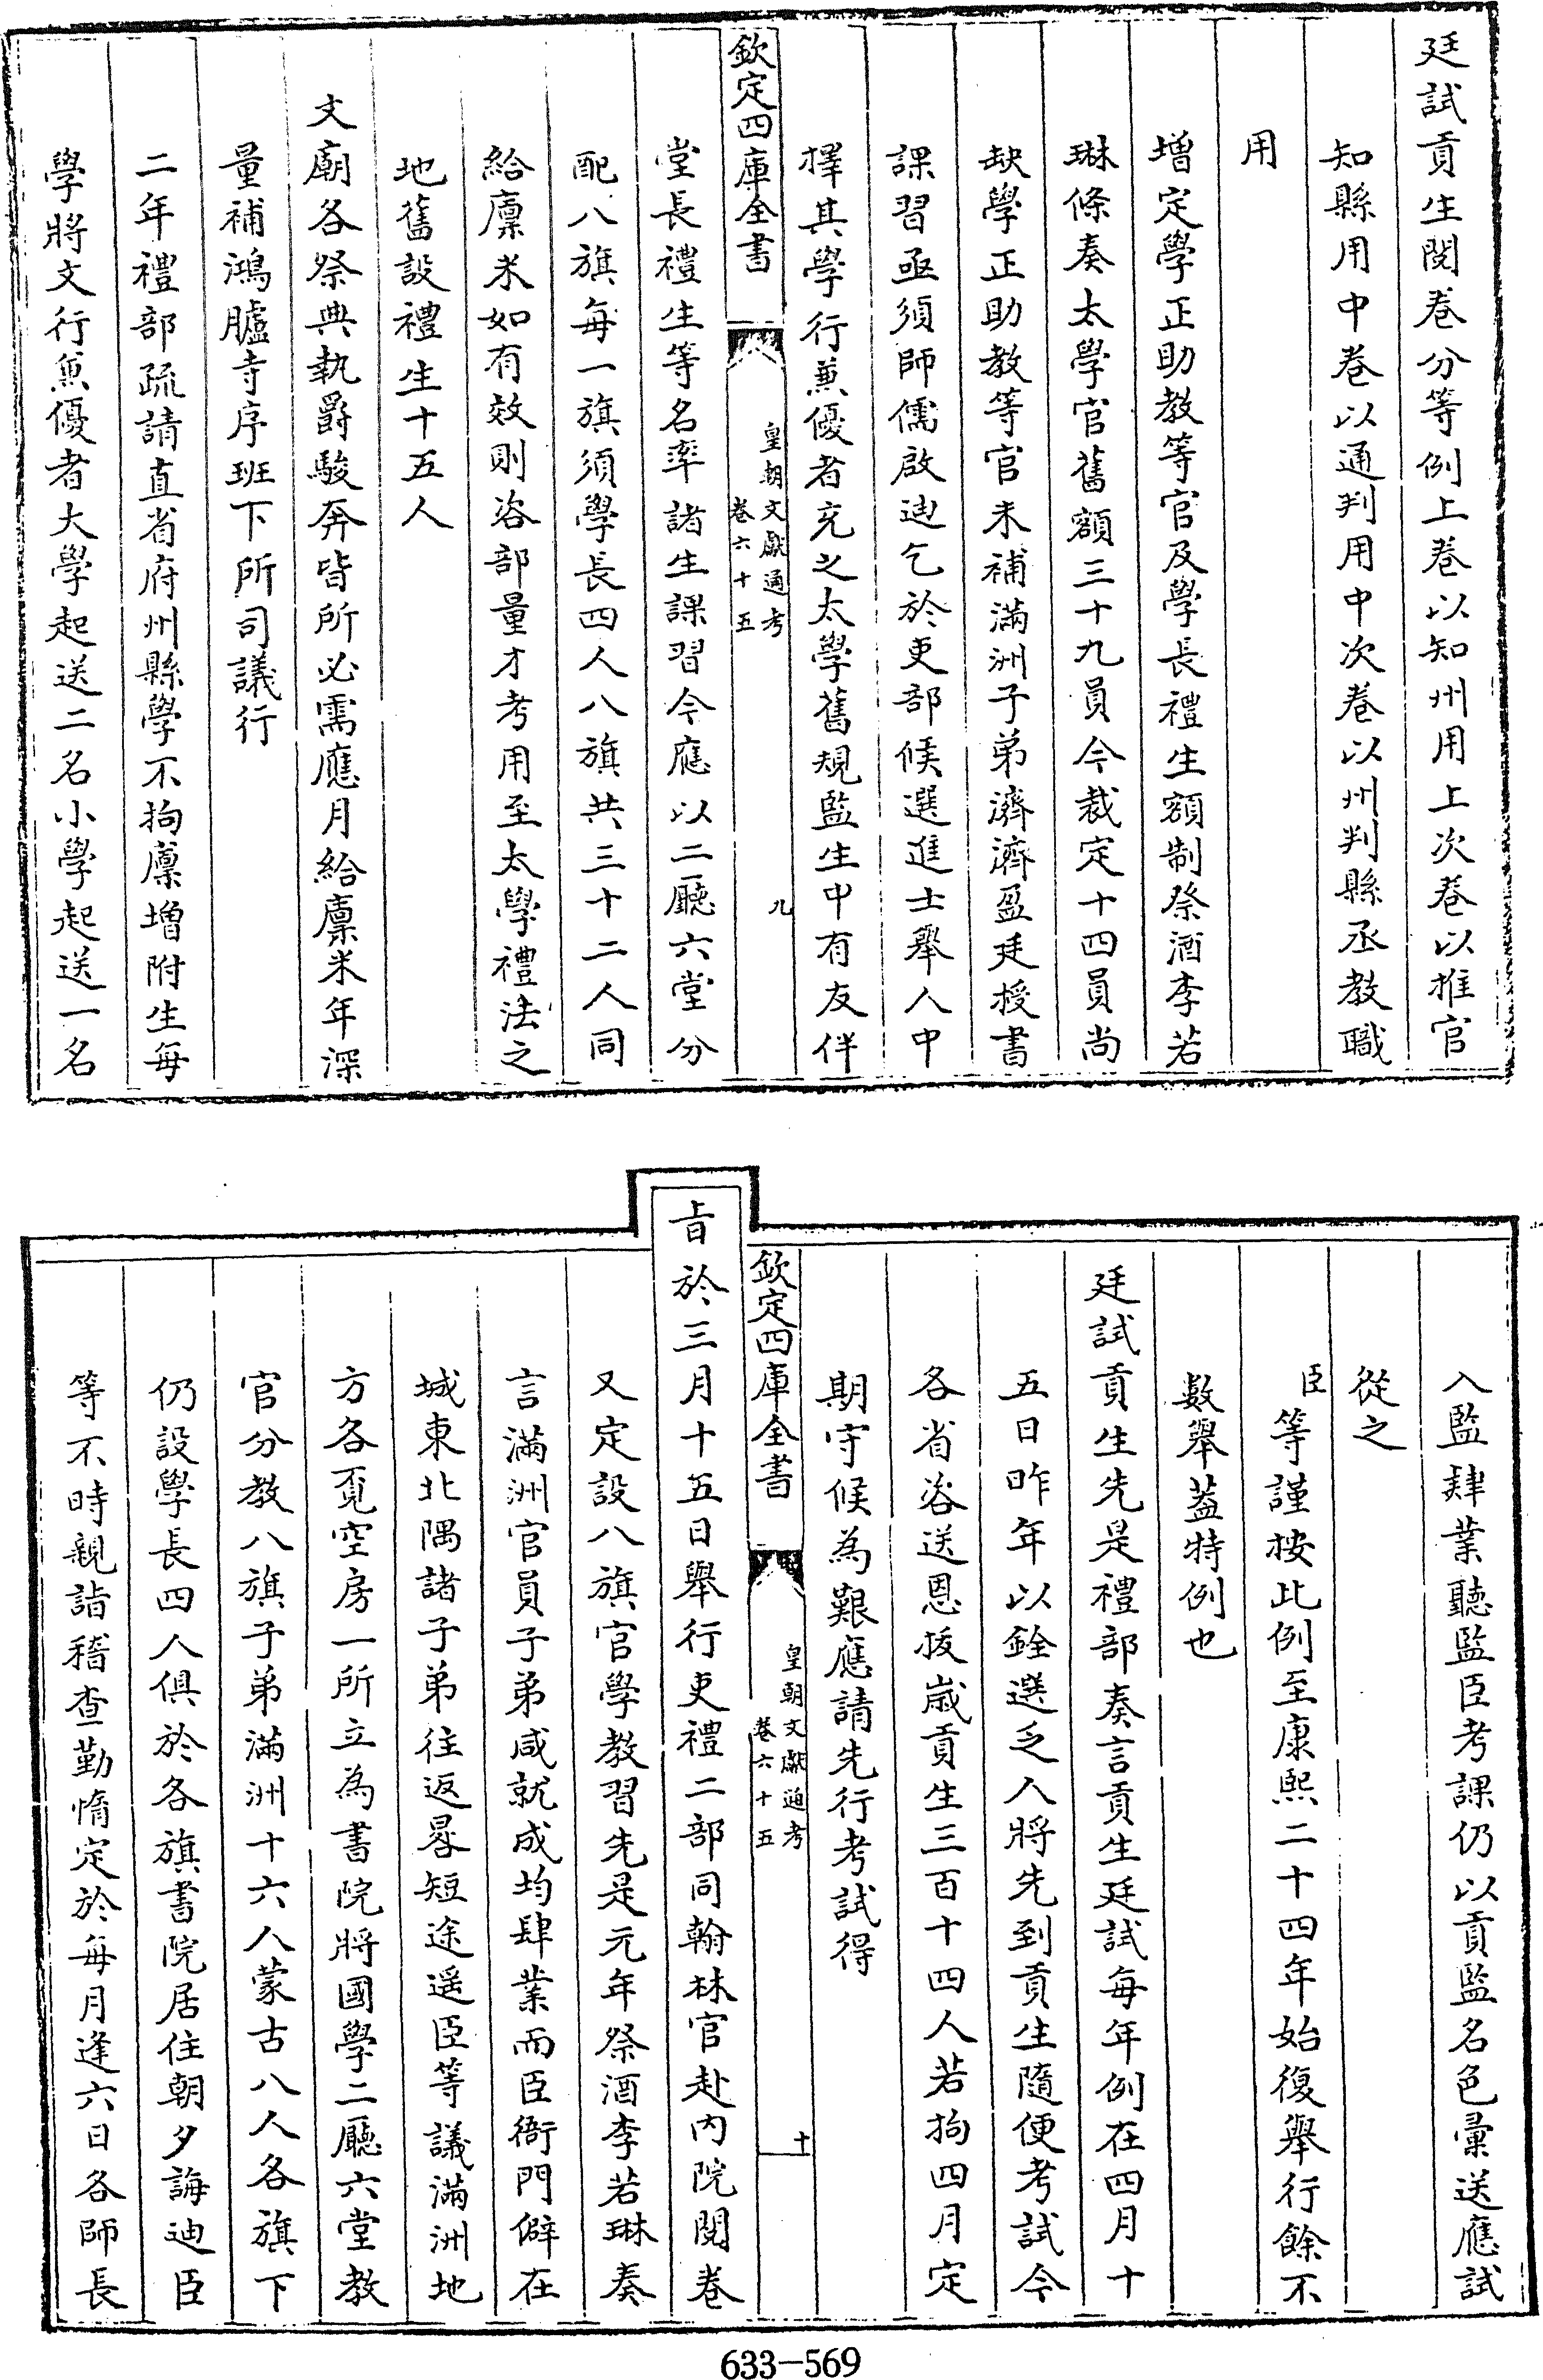 廷試貢生閱卷分等例上卷以知州用上次卷以推官
知縣用中卷以通判用中次卷以州判縣丞教職
用
增定學正助教等官及學長禮生額制祭酒李若
琳條奏太學官舊額三十九員今裁定十四員尚
缺學正助教等官未補滿洲子弟濟濟盈廷授書
課習亟須師儒啟迪乞於吏部候選進士舉人中
擇其學行兼優者充之太學舊規監生中有友伴
欽定四庫全書
皇朝文獻通考
卷六十五
九
堂長禮生等名率諸生課習今應以二廳六堂分
配八旗每一旗須學長四人八旗共三十二人同
給廩米如有效則咨部量才考用至太學禮法之
地舊設禮生十五人
文廟各祭典執爵駿奔皆所必需應月給廩米年深
量補鴻臚寺序班下所司議行
二年禮部疏請直省府州縣學不拘廩增附生每
學將文行兼優者大學起送二名小學起送一名
入監肄業聽監臣考課仍以貢監名色彙送應試
從之
臣等謹按此例至康熙二十四年始復舉行餘不
數舉蓋特例也
廷試貢生先是禮部奏言貢生廷試每年例在四月十
五日昨年以銓選乏人將先到貢生隨便考試今
各省咨送恩拔歲貢生三百十四人若拘四月定
期守候為艱應請先行考試得
欽定四庫全書
皇朝文獻通考
卷六十五
十
旨於三月十五日舉行吏禮二部同翰林官赴內院閱卷
又定設八旗官學教習先是元年祭酒李若琳奏
言滿洲官員子弟咸就成均肆業而臣衙門僻在
城東北隅諸子弟往返晷短途遥臣等議滿洲地
方各覓空房一所立為書院將國學二廳六堂教
官分教八旗子弟滿洲十六人蒙古八人各旗下
仍設學長四人俱於各旗書院居住朝夕誨迪臣
等不時親詣稽查勤惰定於每月逢六日各師長
633-569